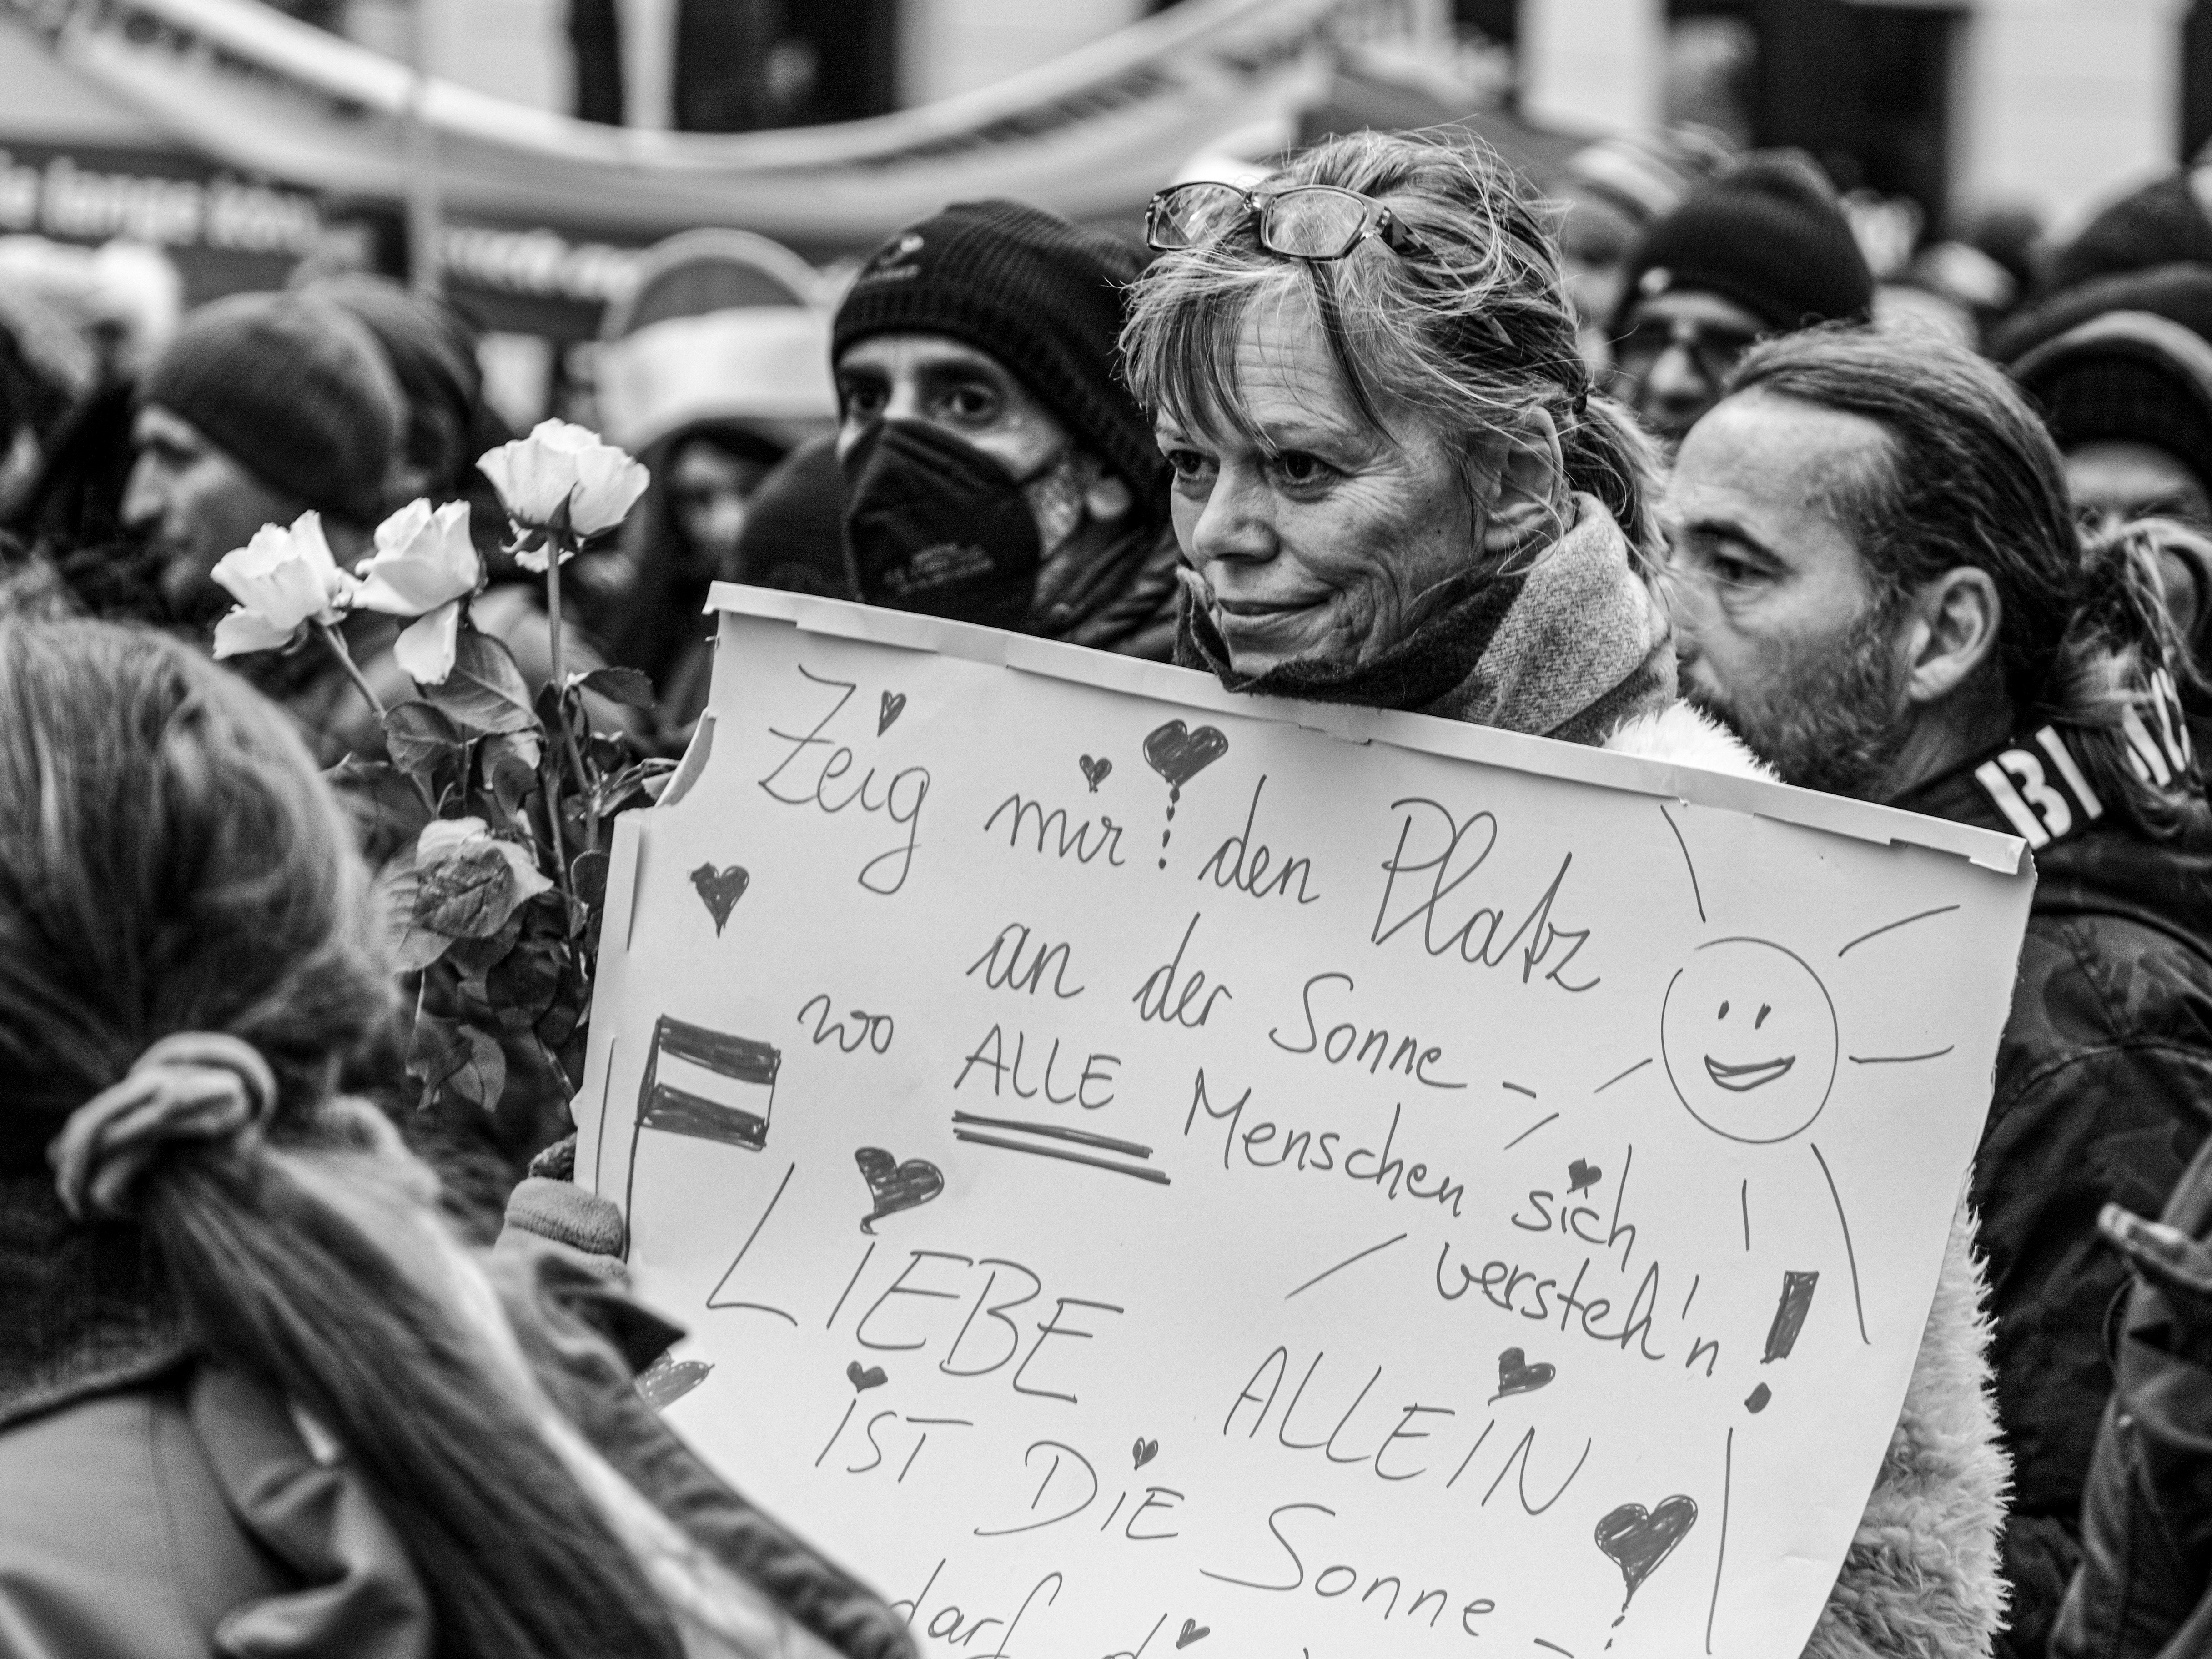 Zeig mir den Platz
an der Sonne -
wo ALLE Menschen sich
versteh'n!
LIEBE ALLEIN
IST DIE Sonne -
darf